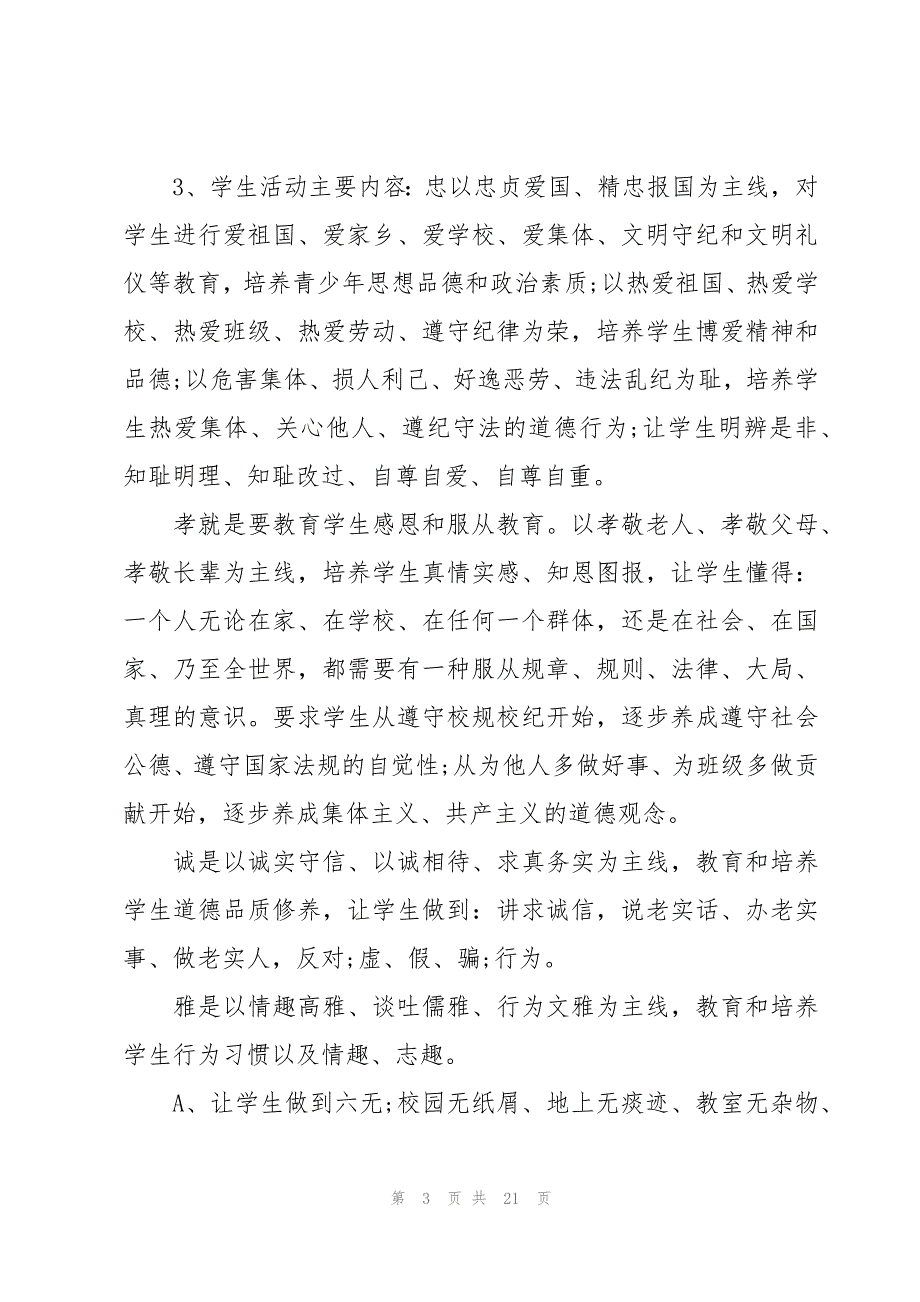 3、学生活动主要内容:忠以忠贞爱国、精忠报国为主线，对
学生进行爱祖国、爱家乡、爱学校、爱集体、文明守纪和文明礼
仪等教育，培养青少年思想品德和政治素质;以热爱祖国、热爱学
校、热爱班级、热爱劳动、遵守纪律为荣，培养学生博爱精神和
品德;以危害集体、损人利己、好逸恶劳、违法乱纪为耻，培养学
生热爱集体、关心他人、遵纪守法的道德行为;让学生明辨是非、
知耻明理、知耻改过、自尊自爱、自尊自重。
孝就是要教育学生感恩和服从教育。以孝敬老人、孝敬父母、
孝敬长辈为主线，培养学生真情实感、知恩图报，让学生懂得：
一个人无论在家、在学校、在任何一个群体，还是在社会、在国
家、乃至全世界，都需要有一种服从规章、规则、法律、大局、
真理的意识。要求学生从遵守校规校纪开始，逐步养成遵守社会
公德、遵守国家法规的自觉性;从为他人多做好事、为班级多做贡
献开始，逐步养成集体主义、共产主义的道德观念。
诚是以诚实守信、以诚相待、求真务实为主线，教育和培养
学生道德品质修养，让学生做到：讲求诚信，说老实话、办老实
事、做老实人，反对;虚、假、骗;行为。
雅是以情趣高雅、谈吐儒雅、行为文雅为主线，教育和培养
学生行为习惯以及情趣、志趣。
A、让学生做到六无;校园无纸屑、地上无痰迹、教室无杂物、
第 3 页 共 21 页